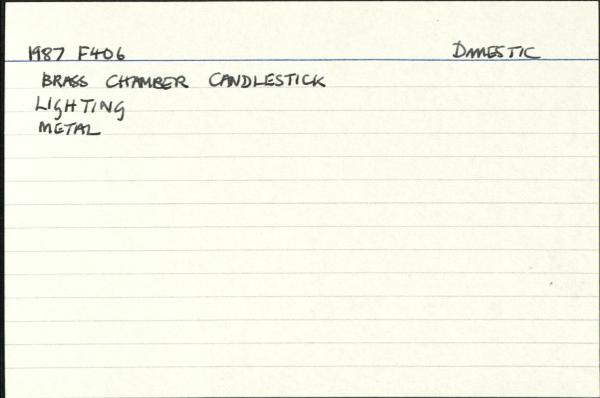 1987 F406 DOMESTIC
BRASS CHAMBER CANDLESTICK
LIGHTING
METAL